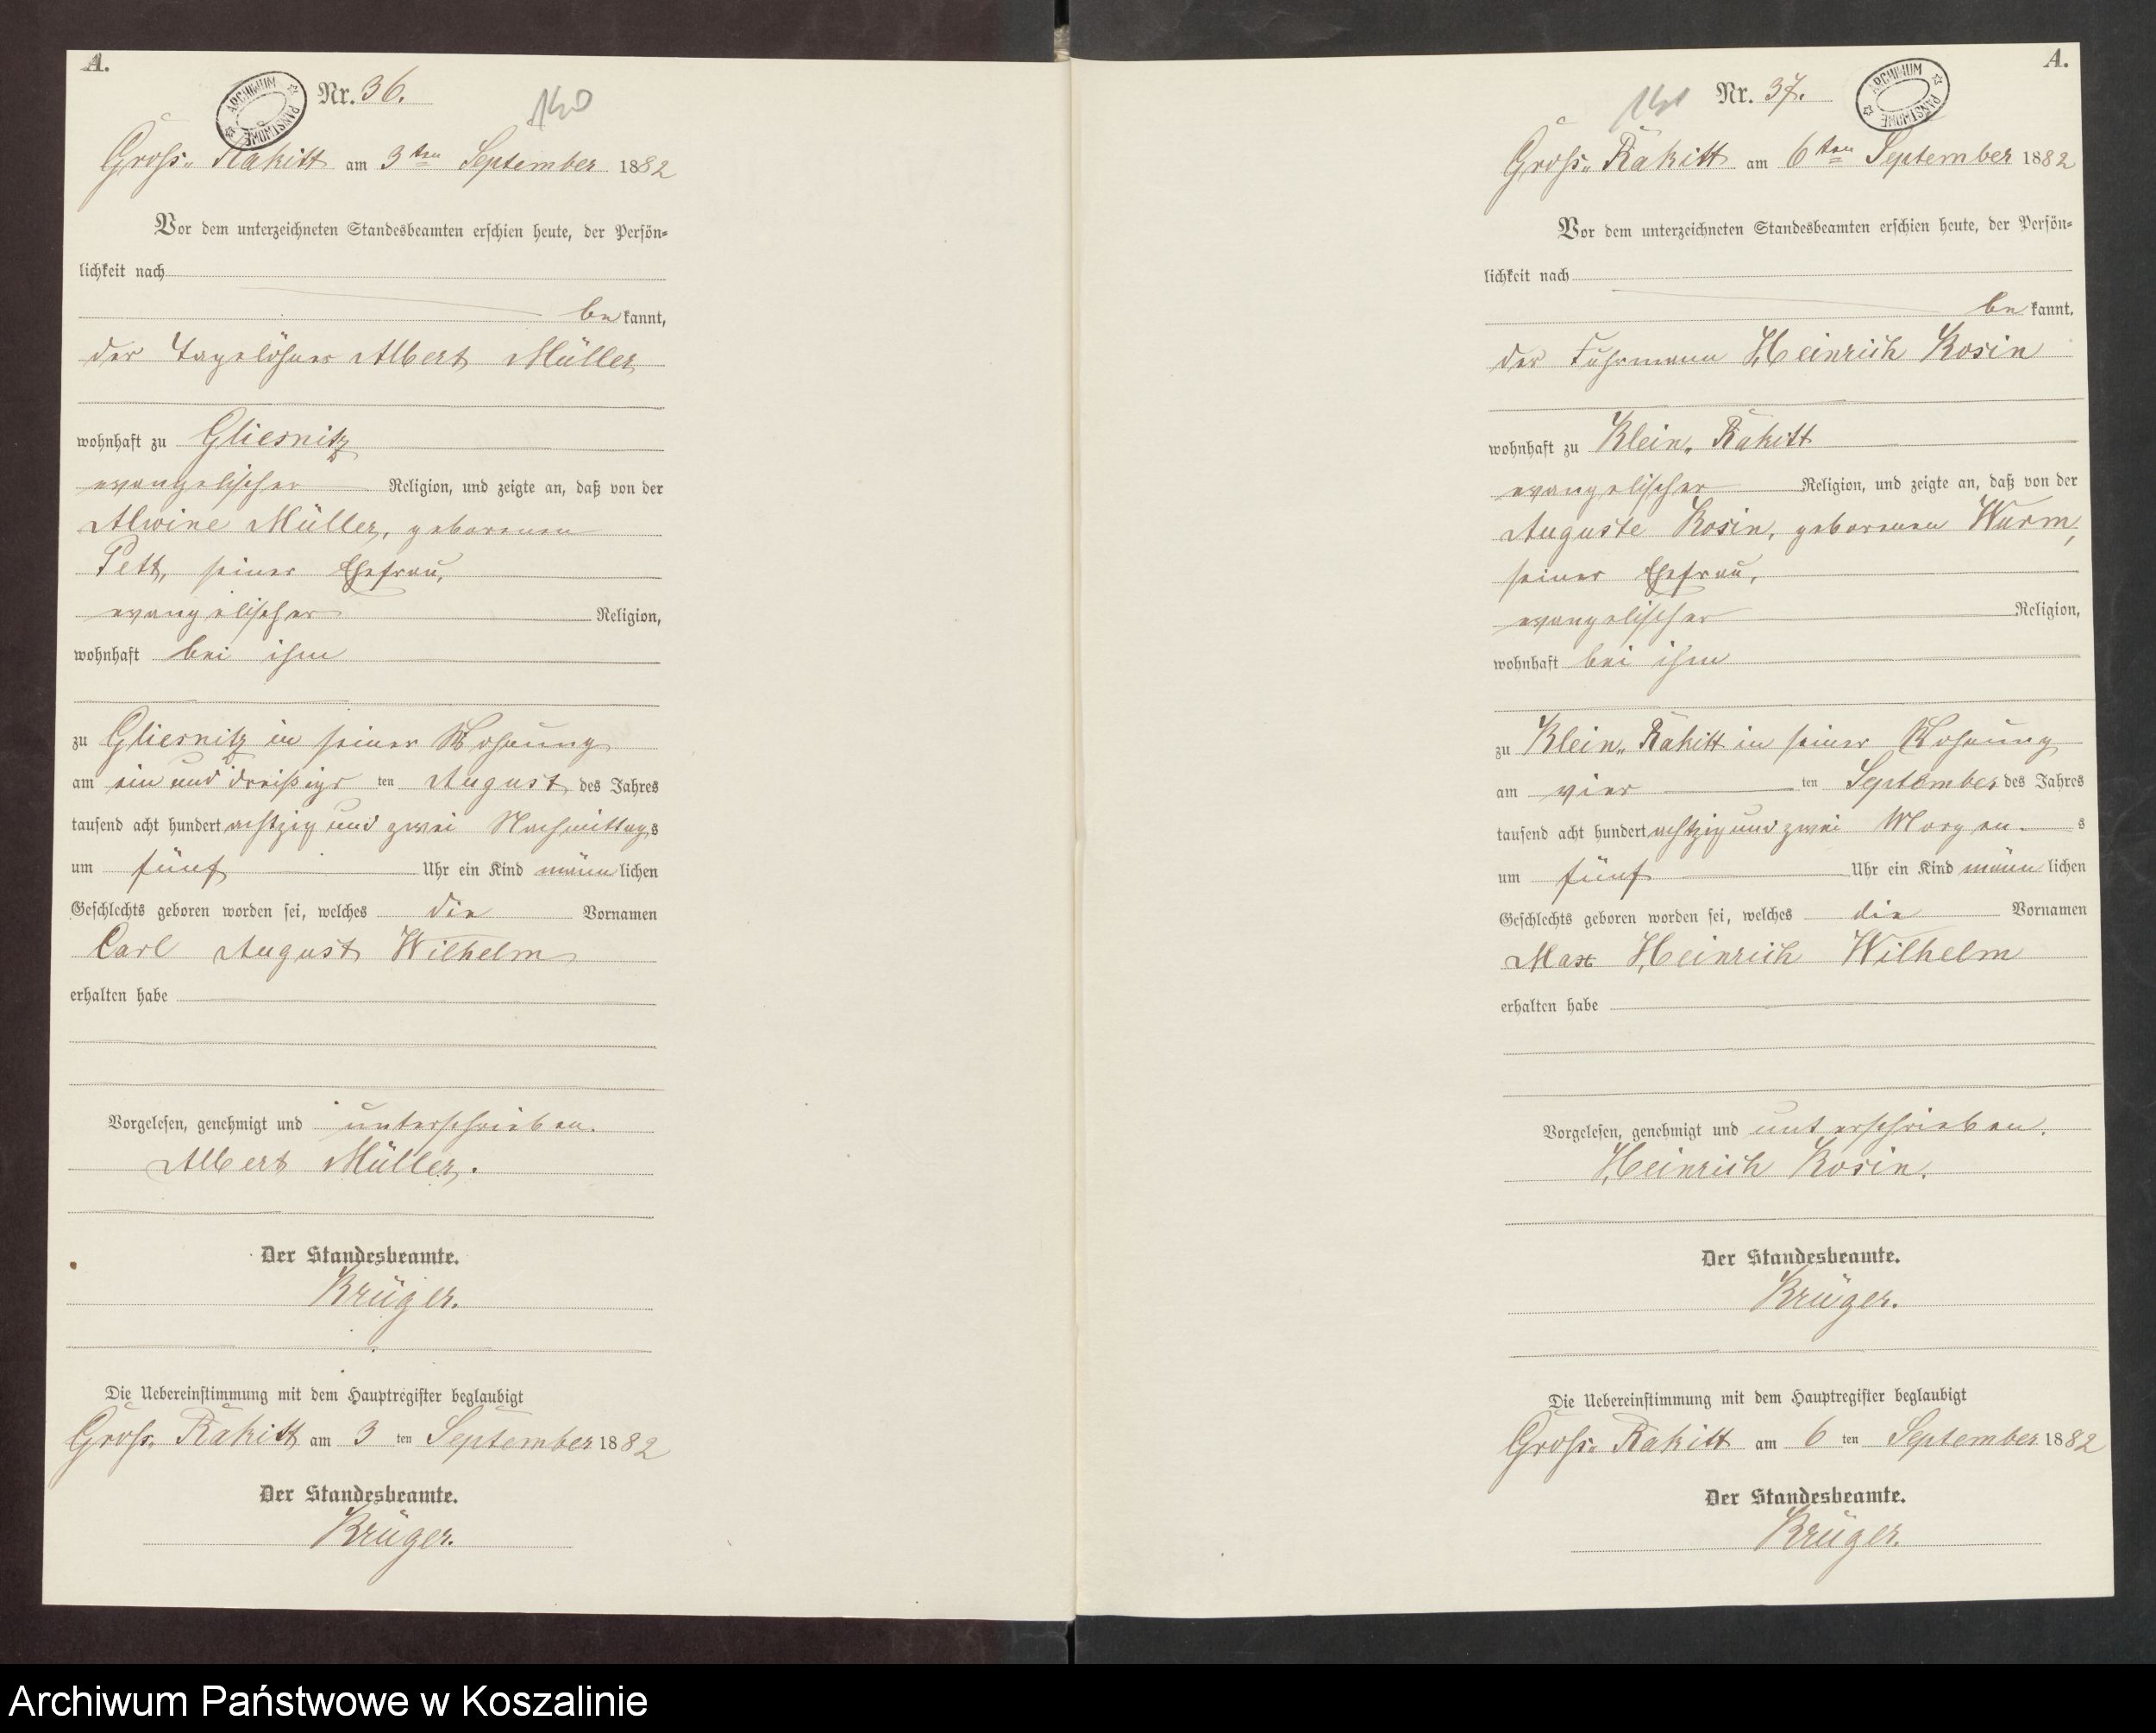 A.
ARCHIWUM PAŃSTWOWE
Nr. 36.
140
Gross„ Rakitt am 3ten September 1882
Vor dem unterzeichneten Standesbeamten erschien heute, der Persön-
lichkeit nach
be kannt,
der Tagelöhner Albert Müller
wohnhaft zu Gliesnitz
evangelischer Religion, und zeigte an, daß von der
Alwine Müller, geborenen
Pett, seiner Ehefrau,
evangelischer Religion,
wohnhaft bei ihm
zu Gliesnitz in seiner Wohnung
am ein und dreißigs ten August des Jahres
tausend acht hundert achtzig und zwei Nachmittags
um fünf Uhr ein Kind männ lichen
Geschlechts geboren worden sei, welches die Vornamen
Carl August Wilhelm
erhalten habe
Vorgelesen, genehmigt und unterschrieben.
Albert Müller.
Der Standesbeamte.
Krüger.
Die Uebereinstimmung mit dem Hauptregister beglaubigt
Gross„ Rakitt am 3 ten September 1882
Der Standesbeamte.
Krüger.
A.
ARCHIWUM PAŃSTWOWE
Nr. 37.
141
Gross„ Rakitt am 6ten September 1882
Vor dem unterzeichneten Standesbeamten erschien heute, der Persön-
lichkeit nach
be kannt,
der Fuhrmann Heinrich Rosin
wohnhaft zu Klein„ Rakitt
evangelischer Religion, und zeigte an, daß von der
Auguste Rosin, geborenen Wurm,
seiner Ehefrau,
evangelischer Religion,
wohnhaft bei ihm
zu Klein„ Rakitt in seiner Wohnung
am vier ten September des Jahres
tausend acht hundert achtzig und zwei Morgen s
um fünf Uhr ein Kind männ lichen
Geschlechts geboren worden sei, welches die Vornamen
Max Heinrich Wilhelm
erhalten habe
Vorgelesen, genehmigt und unterschrieben.
Heinrich Rosin.
Der Standesbeamte.
Krüger.
Die Uebereinstimmung mit dem Hauptregister beglaubigt
Gross„ Rakitt am 6 ten September 1882
Der Standesbeamte.
Krüger.
Archiwum Państwowe w Koszalinie